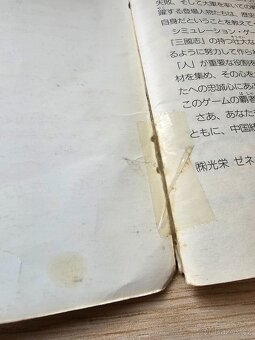 失敗、そして大軍を率いての
躍する登場人物たちは、歴
自身だということを教えて
シミュレーション・ゲー
『三國志』の持つ壮大な
るように努力して作られ
「人」が重要な役割を
材を集め、その心を
たへの忠誠心にあふ
このゲームの覇者
さあ、あなた
ともに、中国統
㈱光栄 ゼネ